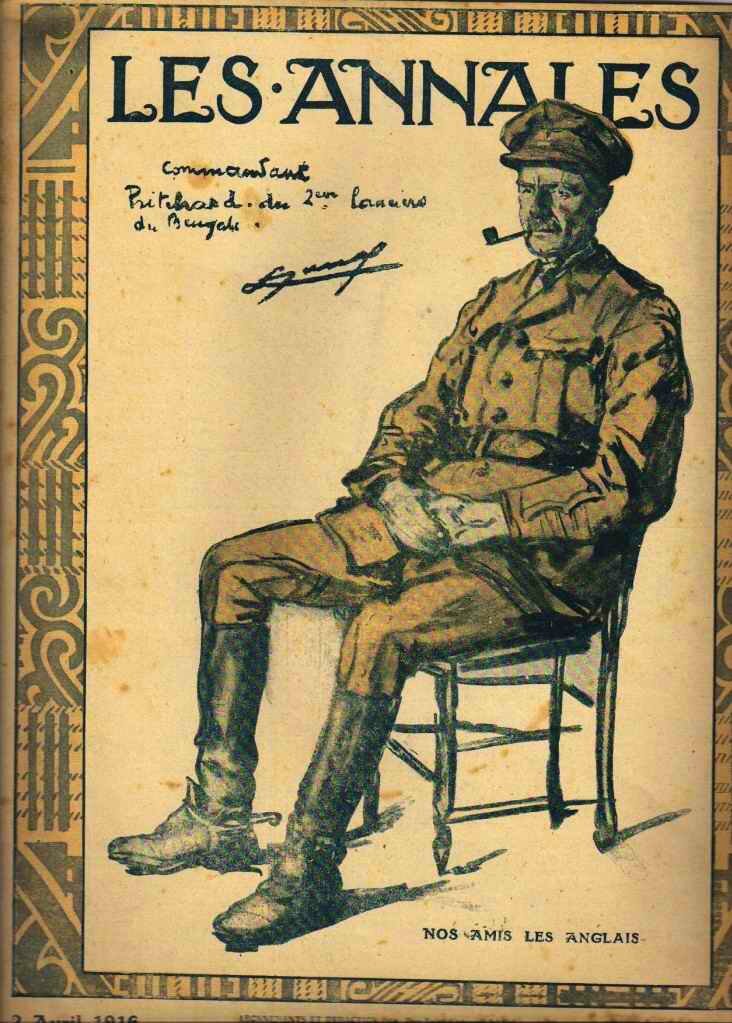 LES·ANNALES
Commandant
Pritchard. du 2eme lanciers
du Bengale.
NOS AMIS LES ANGLAIS
2 Avril 1916
ABONNEMENTS ET